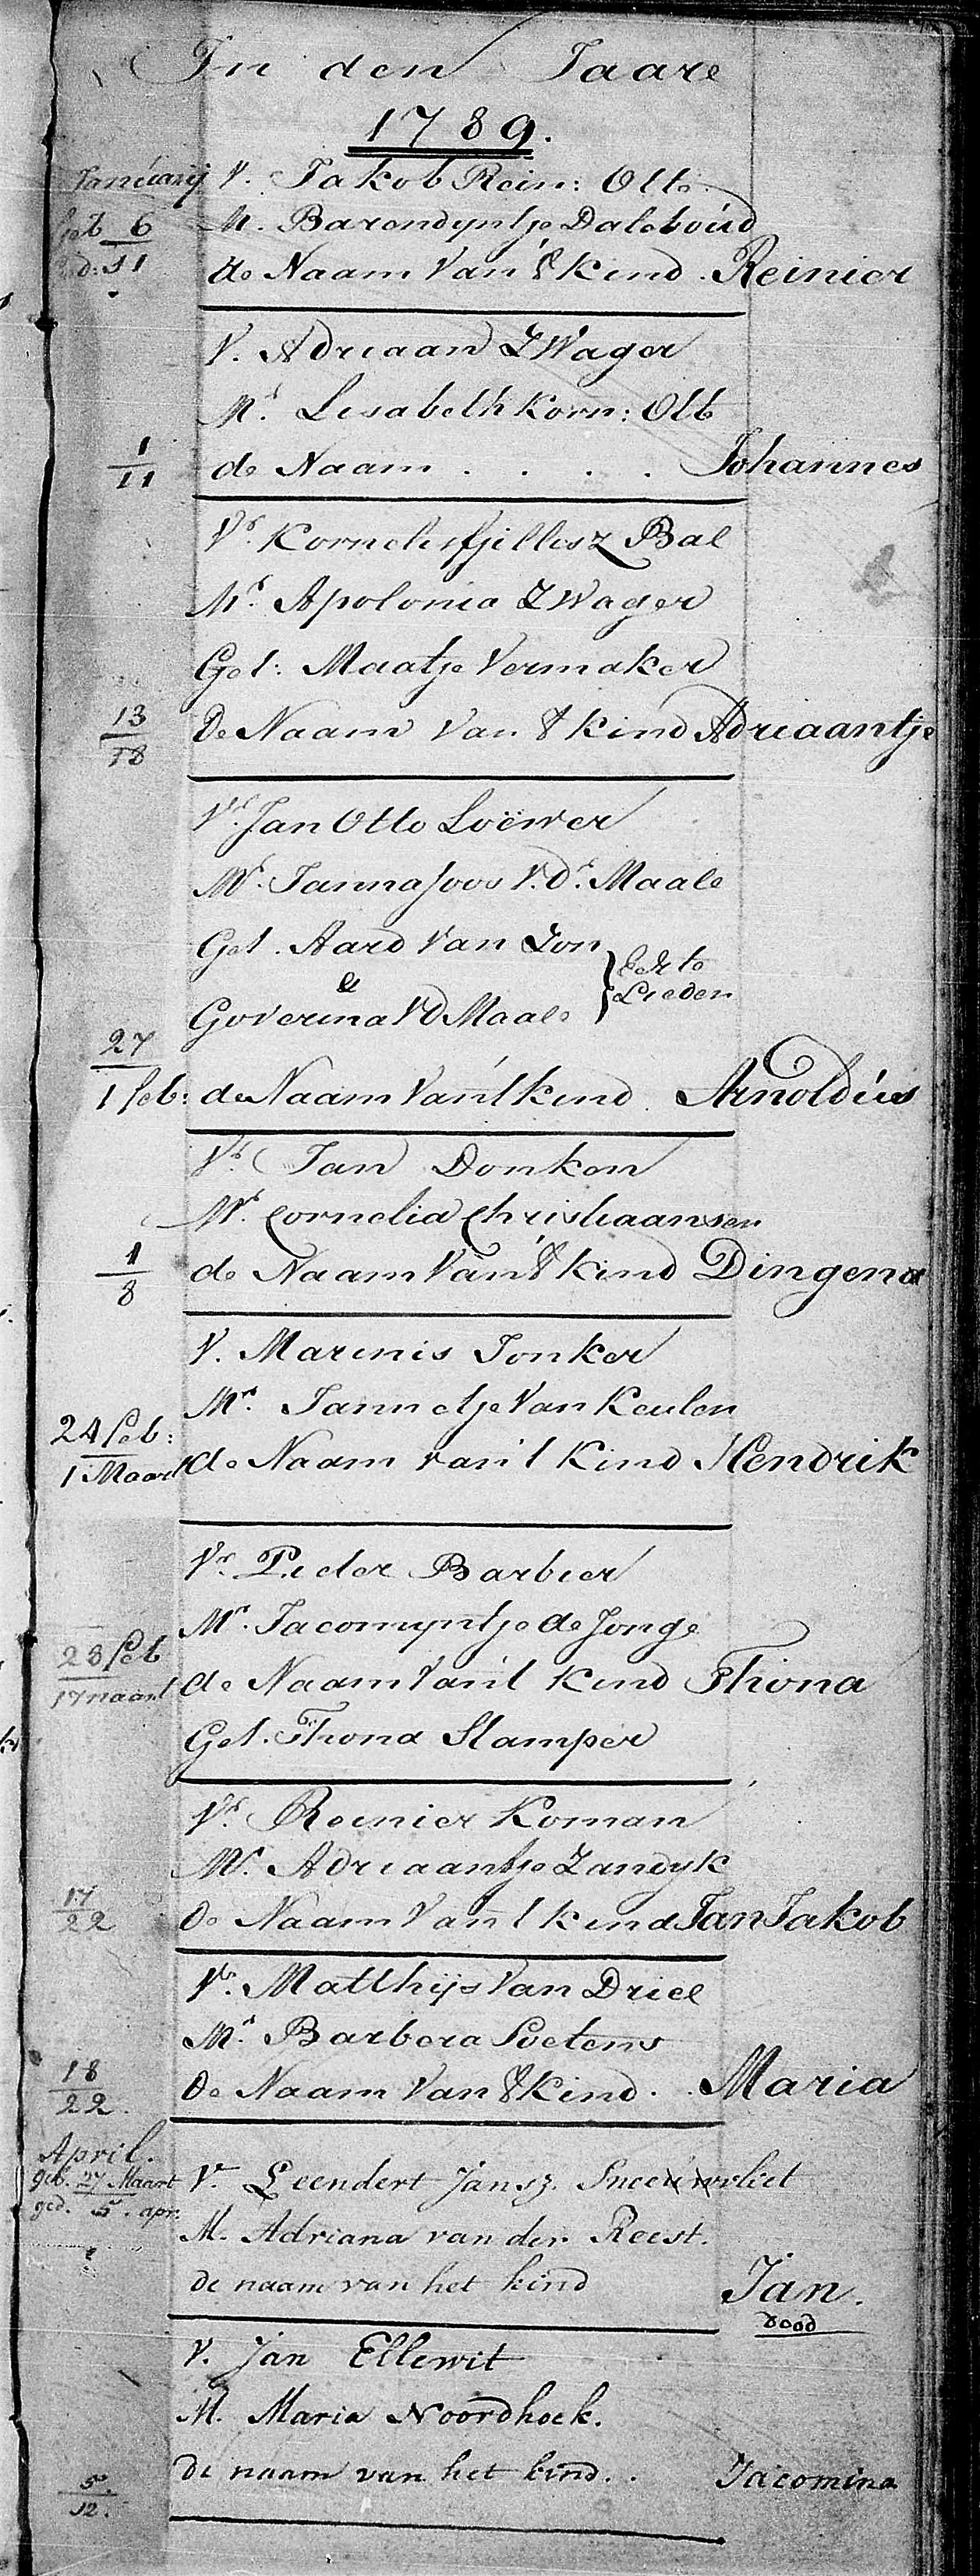 In den Jaare
1789.
Januarij V. Jakob Rein: Otte
geb 6 M. Barendyntje Daleboud
ged: 11 de Naam Van 't kind. Reinier
V. Adriaan ZWager
Mr. Lisabeth Korn: Otte
1/11 de Naam . . . . Johannes
Vr. Kornelis Gillisz Bal
Mr. Apolonia ZWager
Get: Maatje Vermaker
13/18 De Naam Van 't kind Adriaantje
Vr. Jan Otto Loëwer
Mr. Janna Joos V.Dr. Maale
Get. Aard Van Zon } Echte
& Lieden
Goverina VD Maale
27
1 feb: de Naam Van 't kind. Arnoldús
Vr. Jan Donken
Mr. Cornelia Christiaansen
1/8 de Naam Van 't kind Dingena
V. Marinis Jonker
Mr. Jannetje Van Keulen
24 feb:
1 Maart de Naam van 't kind Hendrik
Vr. Pieter Barbier
Mr. Jacomyntje de Jonge
23 feb
1 maart de Naam Van 't kind Thona
Get. Thona Stamper
Vr. Reinier Koman
Mr. Adriaantje Zandyk
17/22 De Naam Van 't kind Jan Jakob
Vr. Matthijs Van Driel
Mr. Barbera Soetens
18/22. De Naam Van 't kind. . Maria
April.
geb. 27 Maart Vr. Leendert Jansz. Sneeuwvliet
ged. 5. apr: M. Adriana van der Reest.
de naam van het kind Jan.
dood
V. Jan Ellewit
M. Maria Noordhoek.
5/12. de naam van het kind. . Jacomina